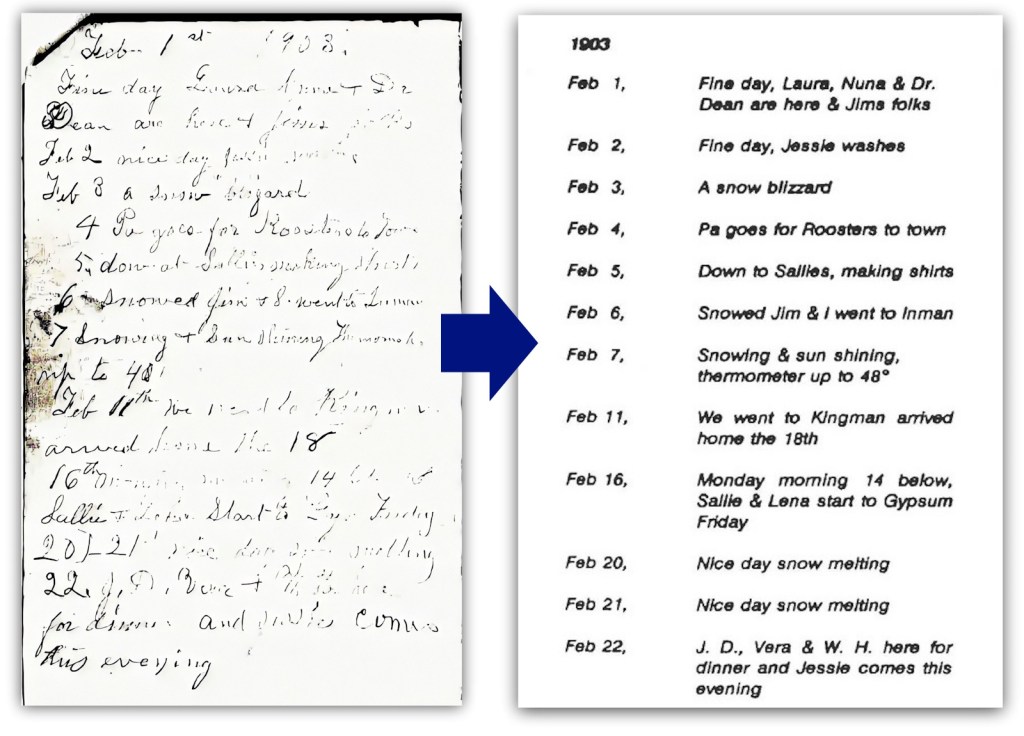 Feb 1st 1903.
Fine day Laura
Dean are here +
Feb 2 nice day
Feb 3 a snow blizard
4 Pa goes for Roosters to Town
5 down at Sallies making shirts
6 Snowed Jim + I went to Inman
7 Snowing + Sun Shining
up to 48
Feb 11th We went to Kingman
arrived home the 18
16th 14
Sallie + Start to Friday
20 - 21st nice day snow melting
22. J. D. +
for dinner and comes
this evening
1903
Feb 1, Fine day, Laura, Nuna & Dr.
Dean are here & Jims folks
Feb 2, Fine day, Jessie washes
Feb 3, A snow blizzard
Feb 4, Pa goes for Roosters to town
Feb 5, Down to Sallies, making shirts
Feb 6, Snowed Jim & I went to Inman
Feb 7, Snowing & sun shining,
thermometer up to 48°
Feb 11, We went to Kingman arrived
home the 18th
Feb 16, Monday morning 14 below,
Sallie & Lena start to Gypsum
Friday
Feb 20, Nice day snow melting
Feb 21, Nice day snow melting
Feb 22, J. D., Vera & W. H. here for
dinner and Jessie comes this
evening